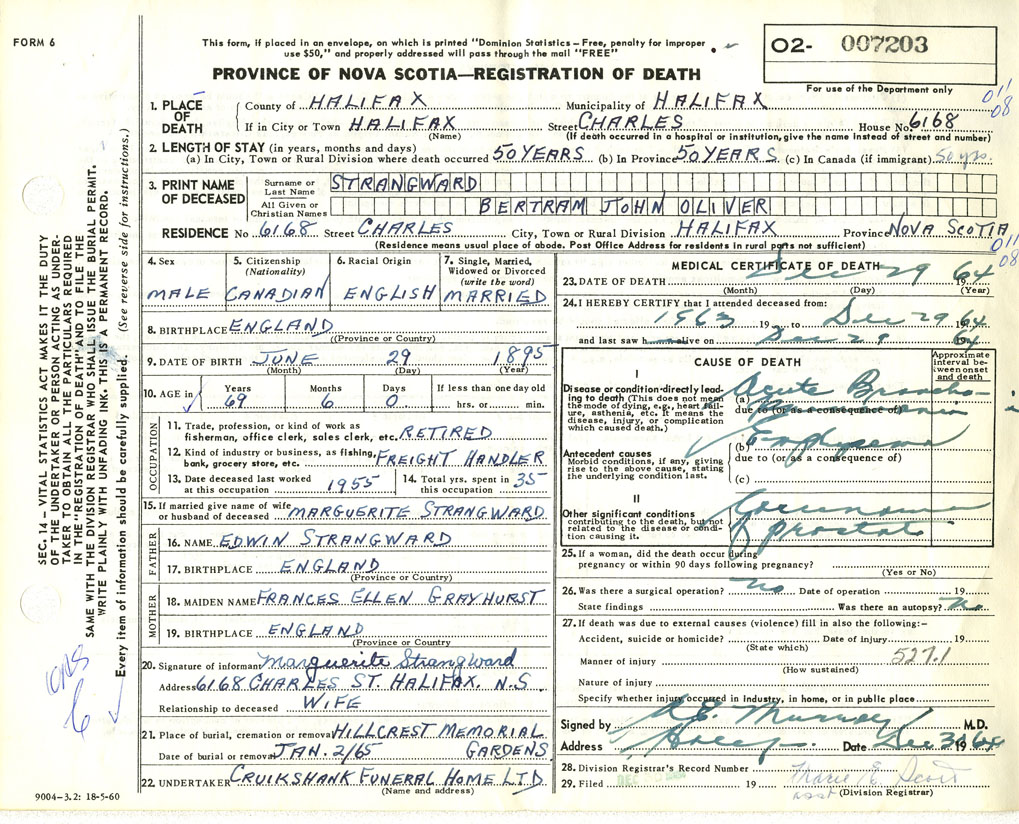 FORM 6
This form, if placed in an envelope, on which is printed "Dominion Statistics – Free, penalty for improper
use $50," and properly addressed will pass through the mail "FREE"
O2- 007203
For use of the Department only
PROVINCE OF NOVA SCOTIA—REGISTRATION OF DEATH
011
08
1. PLACE OF DEATH
County of HALIFAX Municipality of HALIFAX
If in City or Town HALIFAX Street CHARLES House No. 6168
(Name) (If death occurred in a hospital or institution, give the name instead of street and number)
2. LENGTH OF STAY (in years, months and days)
(a) In City, Town or Rural Division where death occurred 50 YEARS (b) In Province 50 YEARS (c) In Canada (if immigrant) 50 yrs.
3. PRINT NAME OF DECEASED
Surname or Last Name STRANGWARD
All Given or Christian Names BERTRAM JOHN OLIVER
RESIDENCE No. 6168 Street CHARLES City, Town or Rural Division HALIFAX Province NOVA SCOTIA
(Residence means usual place of abode. Post Office Address for residents in rural parts not sufficient)
011
08
4. Sex
MALE
5. Citizenship
(Nationality)
CANADIAN
6. Racial Origin
ENGLISH
7. Single, Married,
Widowed or Divorced
(write the word)
MARRIED
8. BIRTHPLACE ENGLAND
((Province or Country)
9. DATE OF BIRTH JUNE 29 1895
(Month) (Day) (Year)
10. AGE in
Years Months Days If less than one day old
69 6 0 hrs. or min.
OCCUPATION
11. Trade, profession, or kind of work as
fisherman, office clerk, sales clerk, etc. RETIRED
12. Kind of industry or business, as fishing,
bank, grocery store, etc. FREIGHT HANDLER
13. Date deceased last worked
at this occupation 1955
14. Total yrs. spent in
this occupation 35
15. If married give name of wife
or husband of deceased MARGUERITE STRANGWARD
FATHER
16. NAME EDWIN STRANGWARD
17. BIRTHPLACE ENGLAND
(Province or Country)
MOTHER
18. MAIDEN NAME FRANCES ELLEN GRAYHURST
19. BIRTHPLACE ENGLAND
(Province or Country
20. Signature of informant Marguerite Strangward
Address 6168 CHARLES ST. HALIFAX. N.S.
Relationship to deceased WIFE
21. Place of burial, cremation or removal HILLCREST MEMORIAL
GARDENS
Date of burial or removal JAN. 2/65
22. UNDERTAKER CRUIKSHANK FUNERAL HOME LTD.
(Name and address)
MEDICAL CERTIFICATE OF DEATH
23. DATE OF DEATH Dec 29 64
(Month) (Day) (Year)
24. I HEREBY CERTIFY that I attended deceased from:
1963 19 to Dec 29 1964
and last saw h alive on Dec 29 64
CAUSE OF DEATH
Approximate
interval be-
tween onset
and death
I
Disease or condition directly lead-
ing to death (This does not mean
the mode of dying, e.g., heart fail-
ure, asthenia, etc. It means the
disease, injury, or complication
which caused death.)
(a) Acute Broncho-
due to (or as a consequence of)
Antecedent causes
Morbid conditions, if any, giving
rise to the above cause, stating
the underlying condition last.
(b) Emphysema
due to (or as a consequence of)
(c)
II
Other significant conditions
contributing to the death, but not
related to the disease or condi-
tion causing it.
Carcinoma
of prostate
25. If a woman, did the death occur during
pregnancy or within 90 days following pregnancy?
(Yes or No)
26. Was there a surgical operation? no Date of operation 19
State findings Was there an autopsy? no
27. If death was due to external causes (violence) fill in also the following:-
Accident, suicide or homicide? Date of injury 19
(State which)
527.1
Manner of injury
(How sustained)
Nature of injury
Specify whether injury occurred in Industry, in home, or in public place
Signed by Murray M.D.
Address Hfx Date Dec 30 1964
28. Division Registrar's Record Number
29. Filed DEC 19 Marie E. Scott
asst (Division Registrar)
SEC. 14 – VITAL STATISTICS ACT MAKES IT THE DUTY
OF THE UNDERTAKER OR PERSON ACTING AS UNDER-
TAKER TO OBTAIN ALL THE PARTICULARS REQUIRED
IN THE "REGISTRATION OF DEATH" AND TO FILE THE
SAME WITH THE DIVISION REGISTRAR WHO SHALL ISSUE THE BURIAL PERMIT.
WRITE PLAINLY WITH UNFADING INK. THIS IS A PERMANENT RECORD.
Every item of information should be carefully supplied. (See reverse side for instructions.)
9004-3.2: 18-5-60